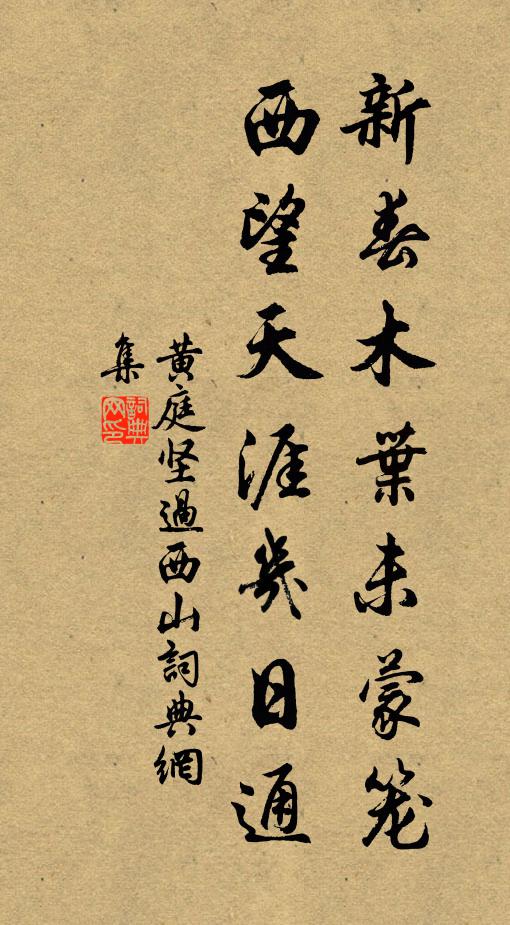 新春木葉未蒙笼
西望天涯幾日通
黄庭坚過西山詞典網
集
詞典网印